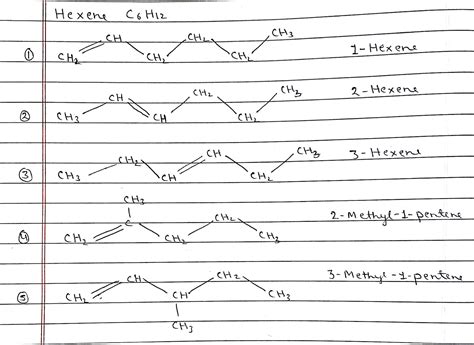 Hexene C6H12
① CH2 CH CH2 CH2 CH2 CH3 1-Hexene
② CH3 CH CH CH2 CH2 CH3 2-Hexene
③ CH3 CH2 CH CH CH2 CH3 3-Hexene
CH3
④ CH2 C CH2 CH2 CH3 2-Methyl-1-pentene
⑤ CH2 CH CH CH2 CH3 3-Methyl-1-pentene
CH3